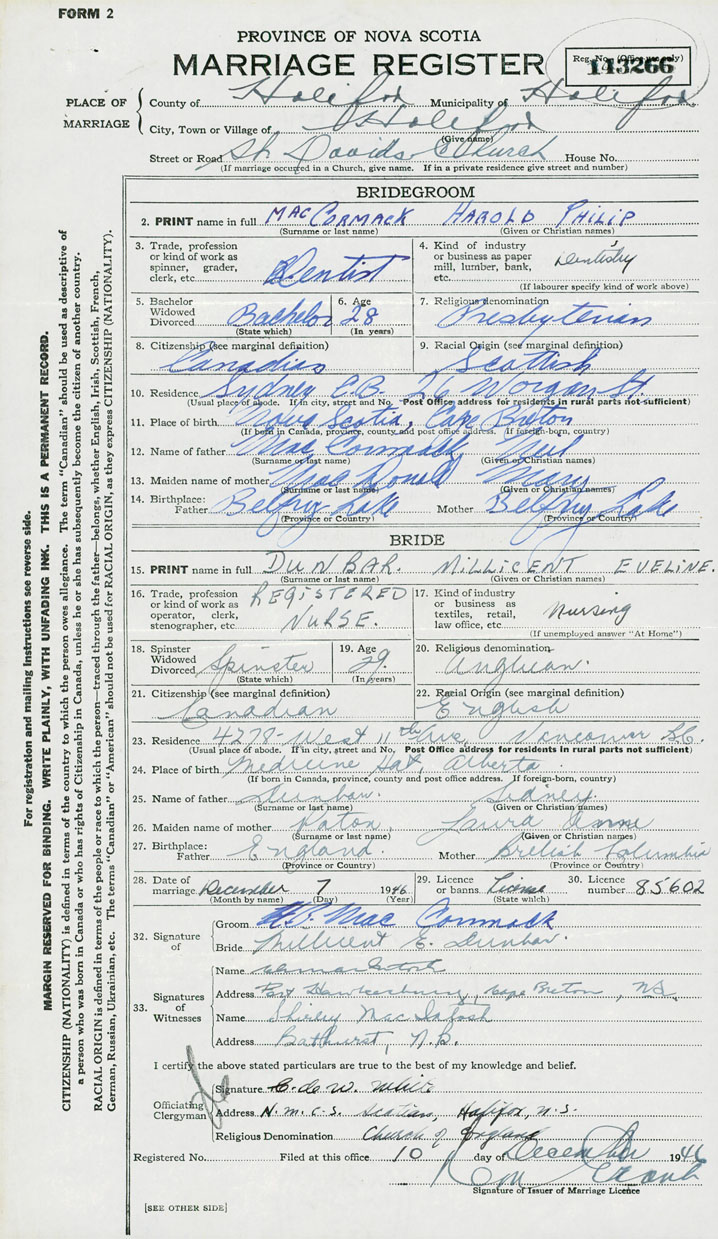 FORM 2
PROVINCE OF NOVA SCOTIA
MARRIAGE REGISTER
Reg. No. (Office use only)
143266
PLACE OF MARRIAGE
County of Halifax Municipality of Halifax
City, Town or Village of Halifax
(Give name)
Street or Road St. Davids Church House No.
(If marriage occurred in a Church, give name. If in a private residence give street and number)
BRIDEGROOM
2. PRINT name in full MacCORMACK HAROLD PHILIP
(Surname or last name) (Given or Christian names)
3. Trade, profession or kind of work as spinner, grader, clerk, etc. Dentist
4. Kind of industry or business as paper mill, lumber, bank, etc. Dentistry
(If labourer specify kind of work above)
5. Bachelor Widowed Divorced Bachelor
(State which)
6. Age 28
(In years)
7. Religious denomination Presbyterian
8. Citizenship (see marginal definition) Canadian
9. Racial Origin (see marginal definition) Scottish
10. Residence Sydney C.B. 26 Morgan St.
(Usual place of abode. If in city, street and No. Post Office address for residents in rural parts not sufficient)
11. Place of birth Nova Scotia, Cape Breton
(If born in Canada, province, county and post office address. If foreign-born, country)
12. Name of father Mac Cormack, Neil
(Surname or last name) (Given or Christian names)
13. Maiden name of mother Mac Donald Mary
(Surname or last name) (Given or Christian names)
14. Birthplace: Father Belfry Lake Mother Belfry Lake
(Province or Country) (Province or Country)
BRIDE
15. PRINT name in full DUNBAR. MILLICENT EVELINE.
(Surname or last name) (Given or Christian names)
16. Trade, profession or kind of work as operator, clerk, stenographer, etc REGISTERED NURSE.
17. Kind of industry or business as textiles, retail, law office, etc. Nursing
(If unemployed answer "At Home")
18. Spinster Widowed Divorced Spinster
(State which)
19. Age 29
(In years)
20. Religious denomination Anglican.
21. Citizenship (see marginal definition) Canadian
22. Racial Origin (see marginal definition) English
23. Residence 4278 West 11th Ave. Vancouver B.C.
(Usual place of abode. If in city, street and No. Post Office address for residents in rural parts not sufficient)
24. Place of birth Medicine Hat, Alberta.
(If born in Canada, province, county and post office address. If foreign-born, country)
25. Name of father Dunbar. Sidney
(Surname or last name) (Given or Christian names)
26. Maiden name of mother Laura Anne
(Surname or last name) (Given or Christian names)
27. Birthplace: Father England. Mother British Columbia
(Province or Country) (Province or Country)
28. Date of marriage December 7 1946
(Month by name) (Day) (Year)
29. Licence or banns License
(State which)
30. Licence number 85602
32. Signature of
Groom H.P. Mac Cormack
Bride Millicent E. Dunbar.
33. Signatures of Witnesses
Name
Address Port Hawkesbury, Cape Breton, N.S.
Name Shirley MacIntosh
Address Bathurst, N.B.
I certify the above stated particulars are true to the best of my knowledge and belief.
Officiating Clergyman
Signature C. de W. White
Address H.M.C.S. Scotian, Halifax, N.S.
Religious Denomination Church of England
Registered No. Filed at this office 10 day of December 1946
Signature of Issuer of Marriage Licence
[SEE OTHER SIDE]
For registration and mailing instructions see reverse side.
MARGIN RESERVED FOR BINDING. WRITE PLAINLY, WITH UNFADING INK. THIS IS A PERMANENT RECORD.
CITIZENSHIP (NATIONALITY) is defined in terms of the country to which the person owes allegiance. The term "Canadian" should be used as descriptive of
a person who was born in Canada or who has rights of Citizenship in Canada, unless he or she has subsequently become the citizen of another country.
RACIAL ORIGIN is defined in terms of the people or race to which the person—traced through the father—belongs, whether English, Irish, Scottish, French,
German, Russian, Ukrainian, etc. The terms "Canadian" or "American" should not be used for RACIAL ORIGIN, as they express CITIZENSHIP (NATIONALITY).